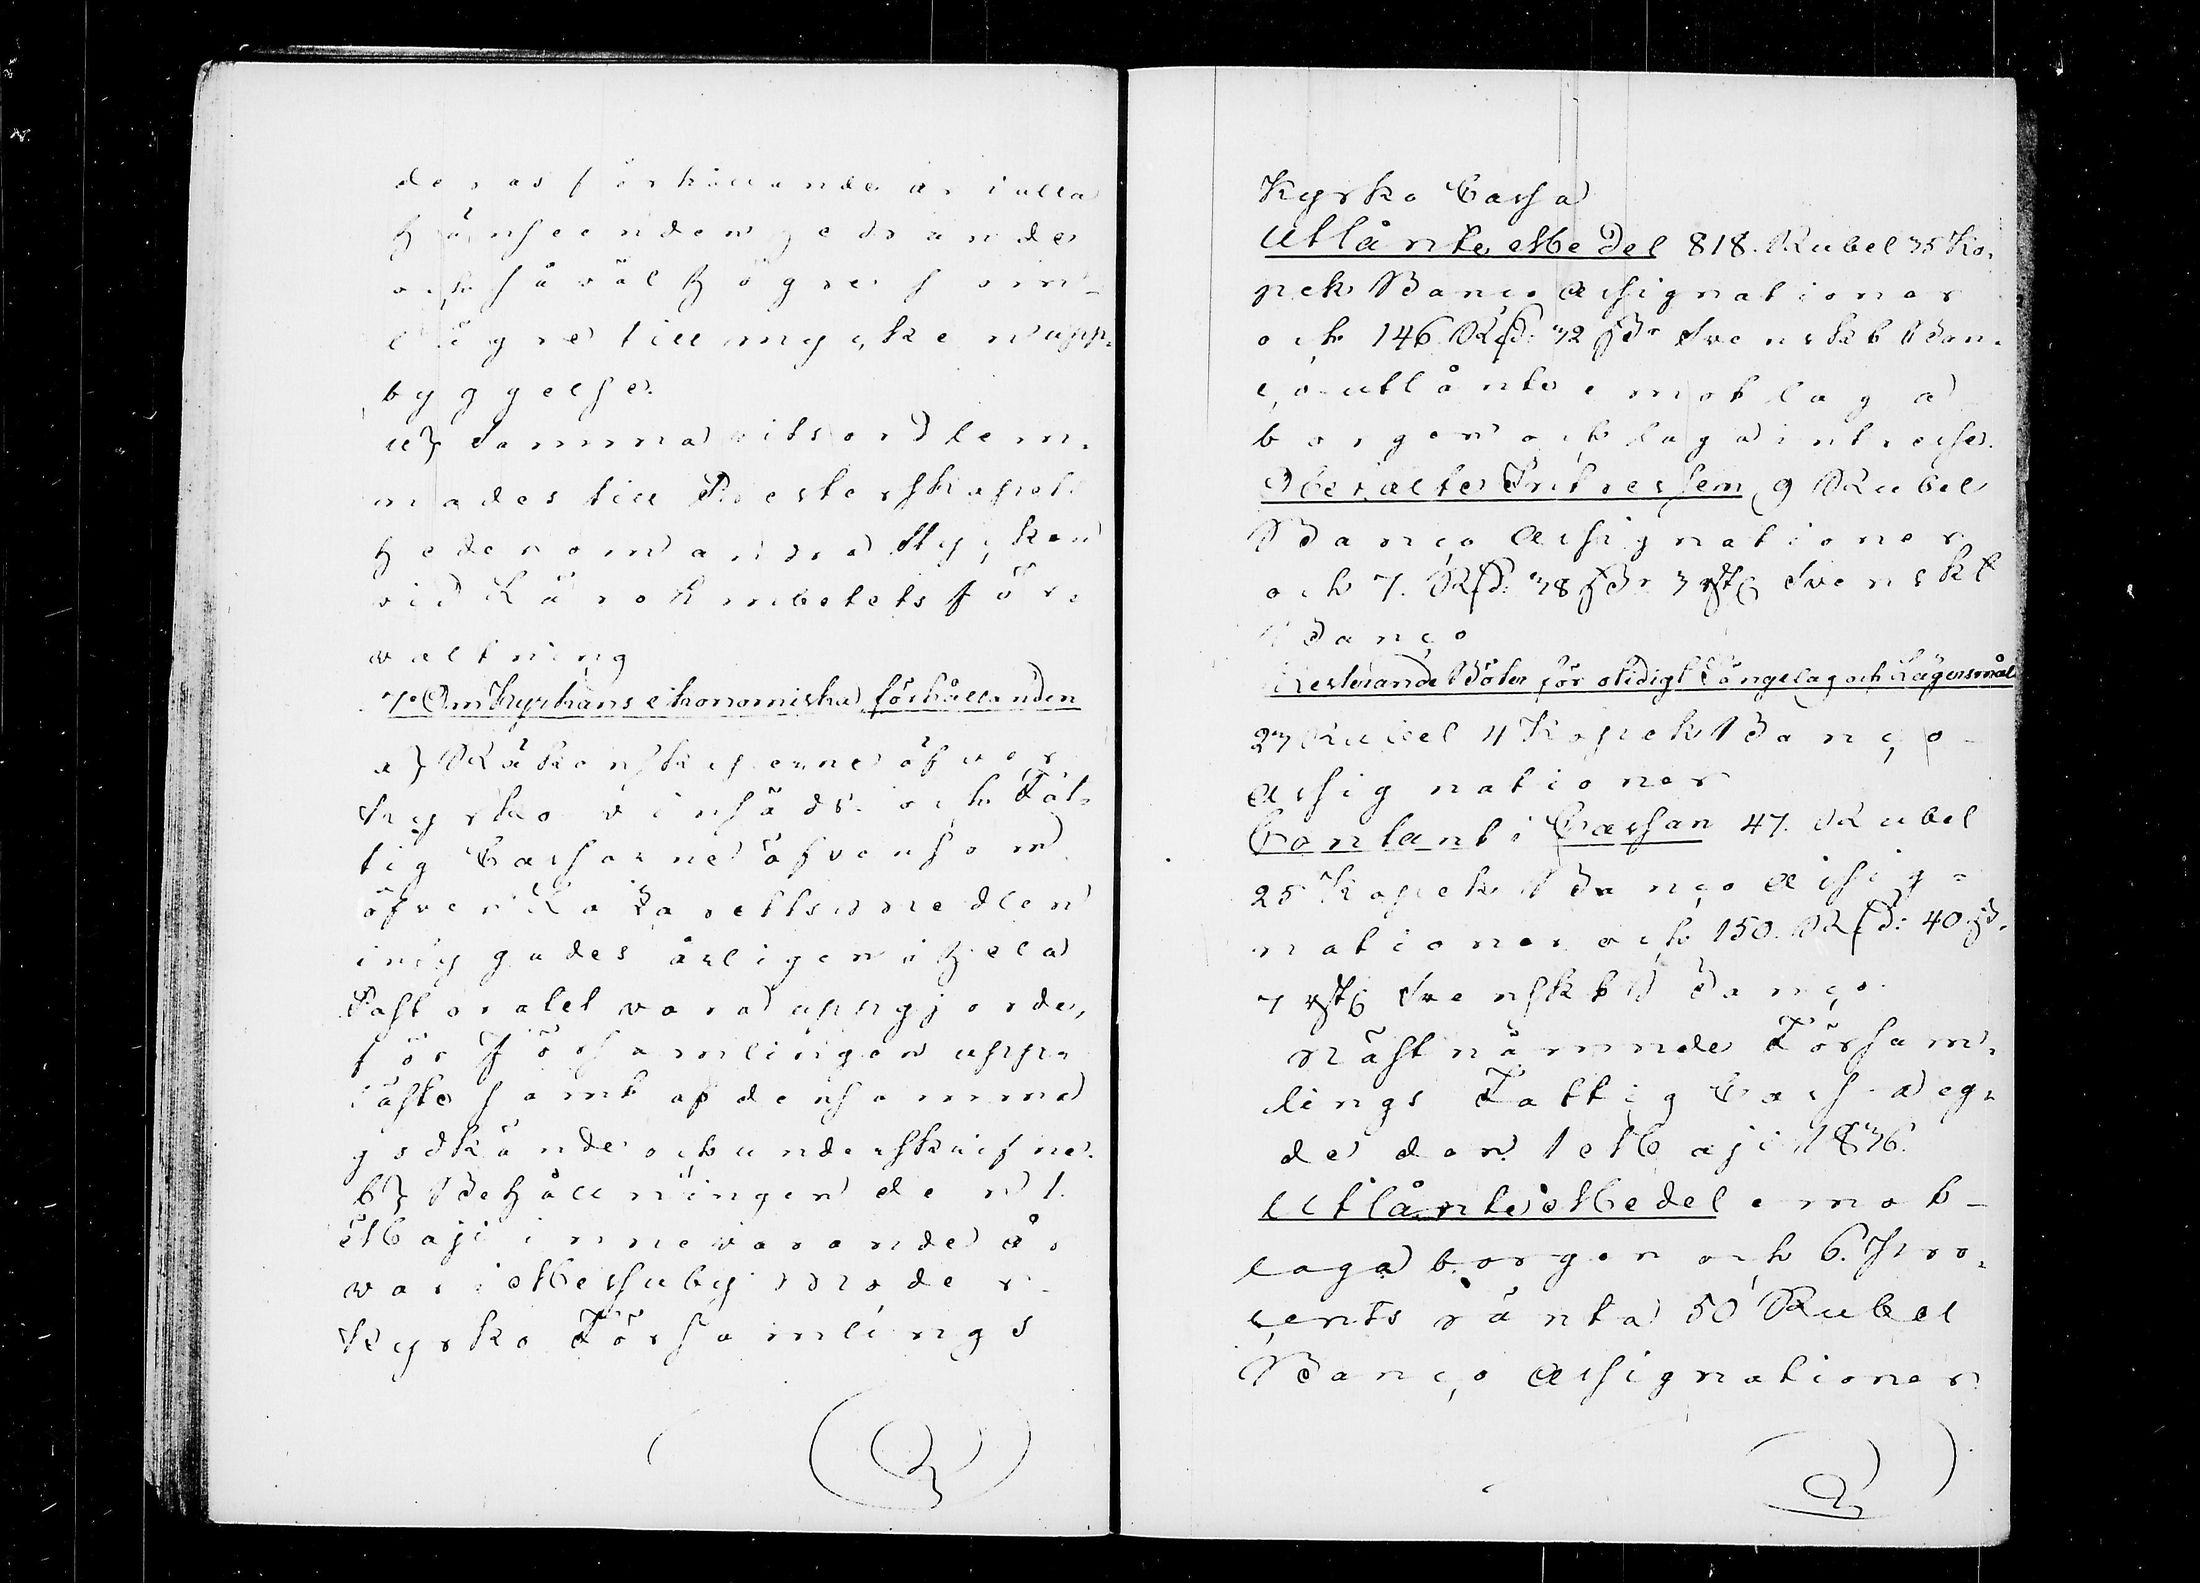 deras förhållande är i alla
hänseenden hedrande
och såväl högre som
lägre till mycken upp-
byggelse.
u) Samma vitsord lem-
nades till Presterskapet
heder om andra stycken
vid Läroembetets för-
valtning
7o Om Kyrkans ekonomiska förhållanden
a) Räkenskaperne öfver
Kyrko vinsäds- och Fat-
tig Cassorne äfvensom
öfver Lazarettsmedlen
inlygades årligen i hela
Pastoratet vara uppgjorde,
för Församlingen upp-
läste samt af densamma
godkände och underskrifne.
b) Behållningen den 1.
Maji innevarande år
var i Messuby moder
Kyrko Församlings
Kyrko Cassa
Utlånte Medel 818. Rubel 35 Ko-
pek Banco Assignationer
och 146 Rd: 32 s Svenskt Ban-
co utlånte emot laga
borgen och laga intresse.
Obetalte Intressen 9 Rubel
Banco Assignationer
och 7. Rd: 38 s 3 rst Svenskt
Banco
Resterande Böter för otidigt Sängelag och Lägersmål
27 Rubel 11 Kopek Banco
Assignationer
Contant i Cassan 47. Rubel
25 Kopek Banco Assig-
nationer och 150. Rd: 40 s
7 rst Svenskt Banco.
Nästnämnde Försam-
lings Fattig Cassa eg-
de den 1 Maji 1836.
Utlånte Medel emot
laga borgen och 6. Pro-
cents ränta 50 Rubel
Banco Assignationer